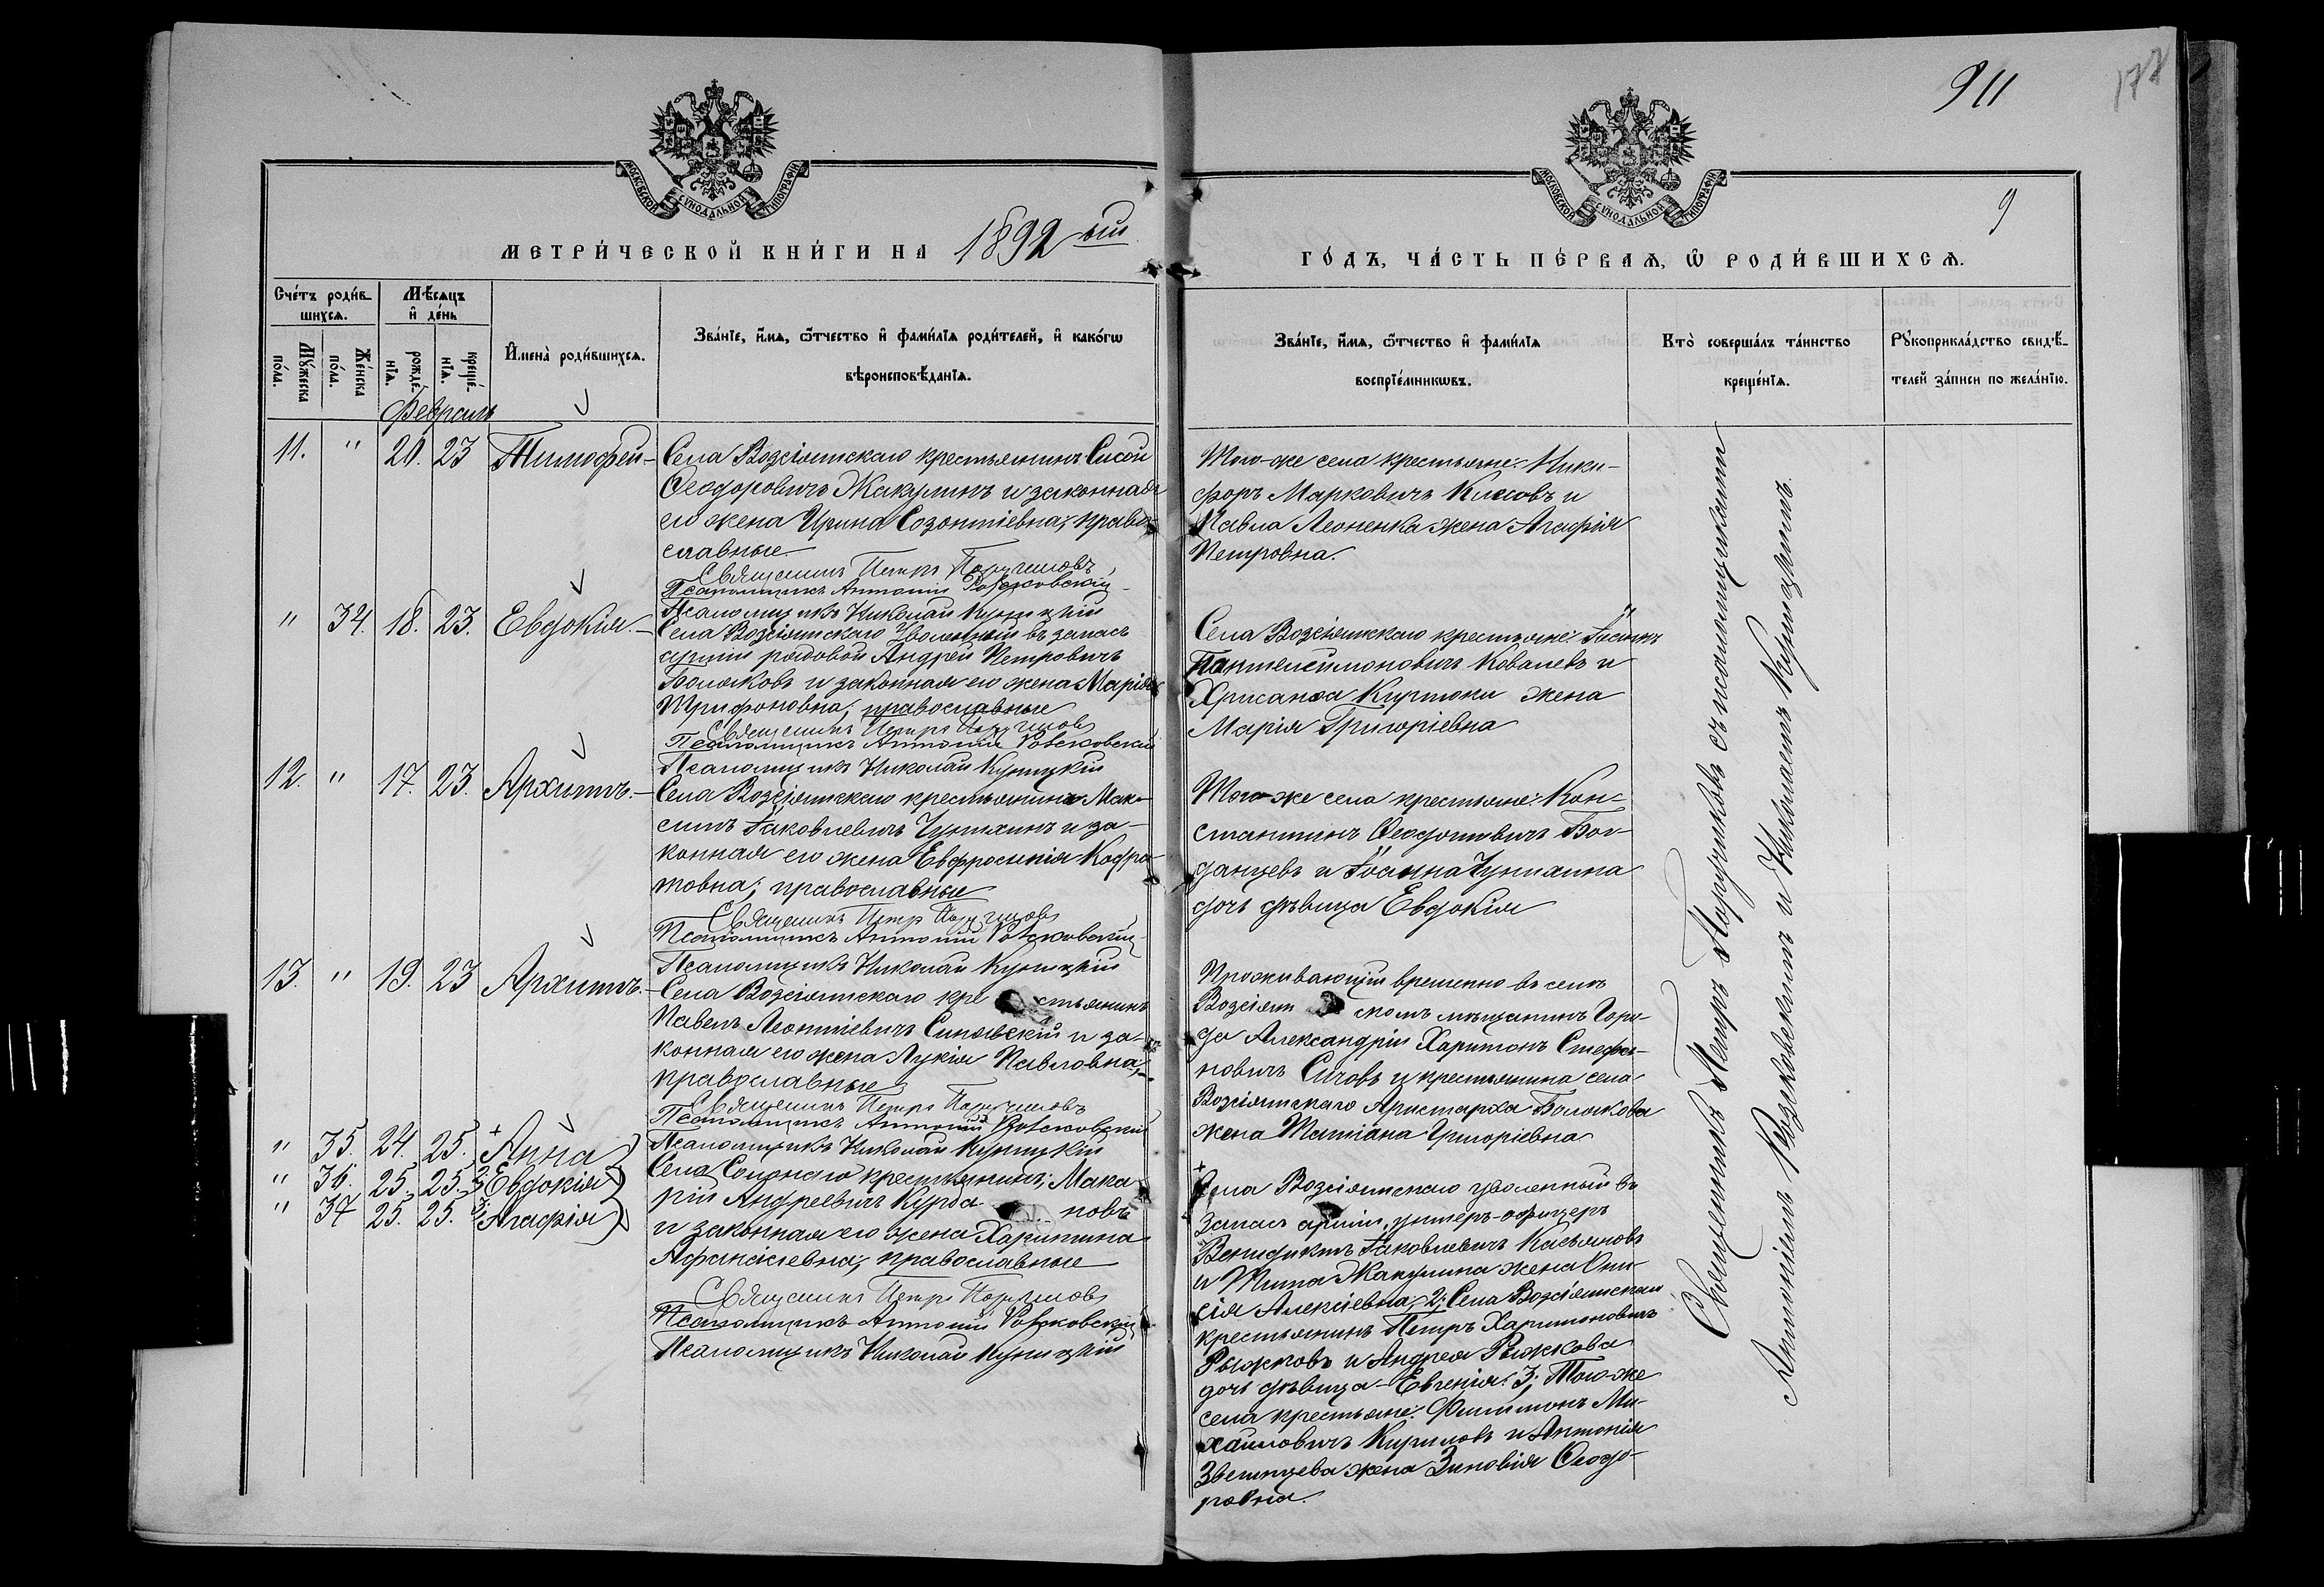 911
177
9
МОСКОВСКОЙ СУНОДАЛЬНОЙ ТИПОГРАФІИ
МОСКОВСКОЙ СУНОДАЛЬНОЙ ТИПОГРАФІИ
МЕТРИ́ЧЕСКОЙ КНИ́ГИ НА 1892 ый
ГО́ДЪ, ЧА́СТЬ ПЕ́РВАЯ, Ѡ РОДИ́ВШИХСЯ.
Сче́тъ роди́в-
шихся.
Мѣ́сяцъ
и҆ де́нь
Му́жеска
по́ла.
Же́нска
по́ла.
рожде́-
нїя.
креще́-
нїя.
И҆мена̀ роди́вшихся.
Зва́нїе, и҆́мя, ѻ҆́тчество и҆ фами́лїя роди́телей, и҆ како́гѡ
вѣроисповѣ́данїя.
Зва́нїе, и҆́мя, ѻ҆́тчество и҆ фами́лїя
воспрїе́мникѡвъ.
Кто̀ соверша́лъ та́инство
креще́нїя.
Рꙋкоприкла́дство свидѣ́-
телей за́писи по жела́нїю.
Февраль
11. " 20. 23 Тимофей- Села Возсіятскаго крестьянинъ Сисой
Ѳеодоровичъ Жакулинъ и законная
его жена Ирина Созонтіевна; право-
славные.
Священникъ Петръ Поручиковъ
Псаломщикъ Антоній
Псаломщикъ Николай Куницкій
Того-же села крестьяне: Ники-
форъ Марковичъ и
Павла Леоненка жена Агафія
Петровна.
" 34. 18. 23. Евдокія.- Села Возсіятскаго уволенный въ запасъ
арміи рядовой Андрей Петровичъ
Поляковъ и законная его жена Марія
Трифоновна; православные
Священникъ Петръ Поручиковъ
Псаломщикъ Антоній
Псаломщикъ Николай Куницкій
Села Возсіятскаго крестьяне: Іустинъ
Пантелеимоновичъ Ковалевъ и
Хрисанѳа жена
Марія Григоріевна
12. " 17. 23. Архиппъ.- Села Возсіятскаго крестьянинъ Мак-
симъ Іаковлевичъ и за-
конная его жена Евфросинія Кодра-
товна; православные
Священникъ Петръ Поручиковъ
Псаломщикъ Антоній
Псаломщикъ Николай Куницкій
Того-же села крестьяне: Кон-
стантинъ Ѳеодотовичъ Бог-
данцевъ и Іоанна
дочь дѣвица Евдокія
13. " 19. 23 Архиппъ.- Села Возсіятскаго кре стьянинъ
Павелъ Леонтіевичъ Синявскій и за-
конная его жена Лукія Павловна;
православные
Священникъ Петръ Поручиковъ
Псаломщикъ Антоній
Псаломщикъ Николай Куницкій
Проживающій временно въ селѣ
Возсіят скомъ мѣщанинъ горо-
да Александріи Харитонъ Стефа-
новичъ Сычовъ и крестьянина села
Возсіятскаго Аристарха Полякова
жена Татіана Григоріевна
" 35. 24. 25. Анна
" 36. 25. 25. 2; Евдокія
" 37 25. 25. 3; Агафія
Села Солонаго крестьянинъ Мака-
рій Андреевичъ Курба новъ
и законная его жена Харитина
Афанасіевна; православные
Священникъ Петръ Поручиковъ
Псаломщикъ Антоній
Псаломщикъ Николай Куницкій
Села Возсіятскаго уволенный въ
запасъ арміи, унтеръ-офицеръ
Венидиктъ Іаковлевичъ Касьяновъ
и Тита Жакулина жена Они-
сія Алексіевна; 2; Села Возсіятскаго
крестьянинъ Петръ Харитоновичъ
Рыжковъ и Андрея Рыжкова
дочь дѣвица-Евгенія: 3; Того-же
села крестьяне: Филимонъ Ми-
хайловичъ Кириловъ и Антонія
Звягинцева жена Зиновія Ѳеодо-
ровна.
Священникъ Петръ Поручиковъ съ псаломщиками
Антоніемъ и Николаемъ Куницкимъ.